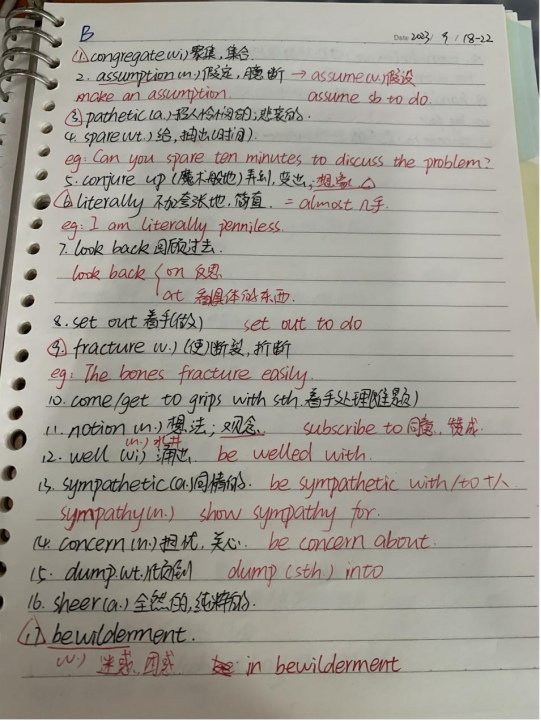 B
Date 2023 / 9 / 18-22
① congregate(vi.)聚集,集合
2. assumption(n.)假定,臆断 → assume(v.)假设
make an assumption. assume sb to do.
③ pathetic(a.)招人怜悯的;悲哀的.
4. spare(vt.)给,抽出(时间)
eg: Can you spare ten minutes to discuss the problem?
5. conjure up (魔术般地)弄到,变出;想象
⑥ literally 不加夸张地,简直 = almost 几乎.
eg: I am literally penniless.
7. look back 回顾过去.
look back { on 反思
at 看具体的东西.
8. set out 着手(做) set out to do
⑨ fracture (v.)(使)断裂,折断
eg: The bones fracture easily.
10. come/get to grips with sth.着手处理(难题)
11. notion (n.)想法;观念. subscribe to 同意,赞成.
(n.)水井
12. well (vi.)涌出. be welled with.
13. sympathetic(a.)同情的. be sympathetic with/to+人
sympathy(n.) show sympathy for.
14. concern(n.)担忧,关心. be concern about.
15. dump(vt.)倾倒 dump (sth.) into
16. sheer(a.)全然的,纯粹的.
17 bewilderment.
迷惑,困惑 in bewilderment